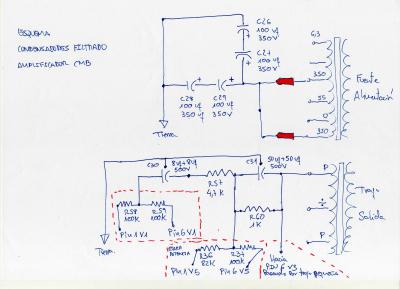 ESQUEMA
CONDENSADORES FILTRADO
AMPLIFICADOR CMB
C26
100 uf
350V
C27
100 uf
350V
C28
100 uf
350V
C29
100 uf
350V
Tierra
6,3
350
55
0
350
Fuente
Alimentación
C30
8uf+8uf
500V
C31
50uf+50uf
500V
R57
4,7 K
R58
100K
R59
100K
Pin 1 V1
Pin 6 V1
R60
1K
Tierra
R36
82K
R37
100K
Pin 1 V5
Pin 6 V5
Hacia
PIN 6 V3
P
P
Trafo
Salida